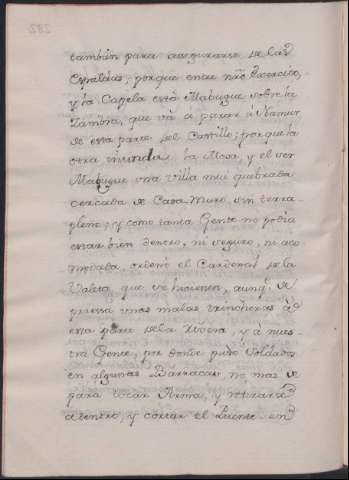 tambien para asegurarse de las
Espaldas; porque entre nro Exercito,
y la Capela está Mabuque sobre la
Zambra, que và à parar à Namur
de esta parte del Castillo; porque la
otra inunda la Mosa, y el ser
Mabuque una villa mui quebrada
cercada de Casa Muro, sin terra-
pleno; y como tanta Gente no podia
estar bien dentro, ni seguro, ni aco
modada, ordenó el Cardenal de la
Valeta, que se hiciesen, aunq. de
priessa unas malas trincheras à
esta parte de la Rivera, y à nues-
tra Gente, por donde puso Soldados
en algunas Barracas, no mas de
para tocar Arma, y retirarse
adentro, y cortar el Puente. en